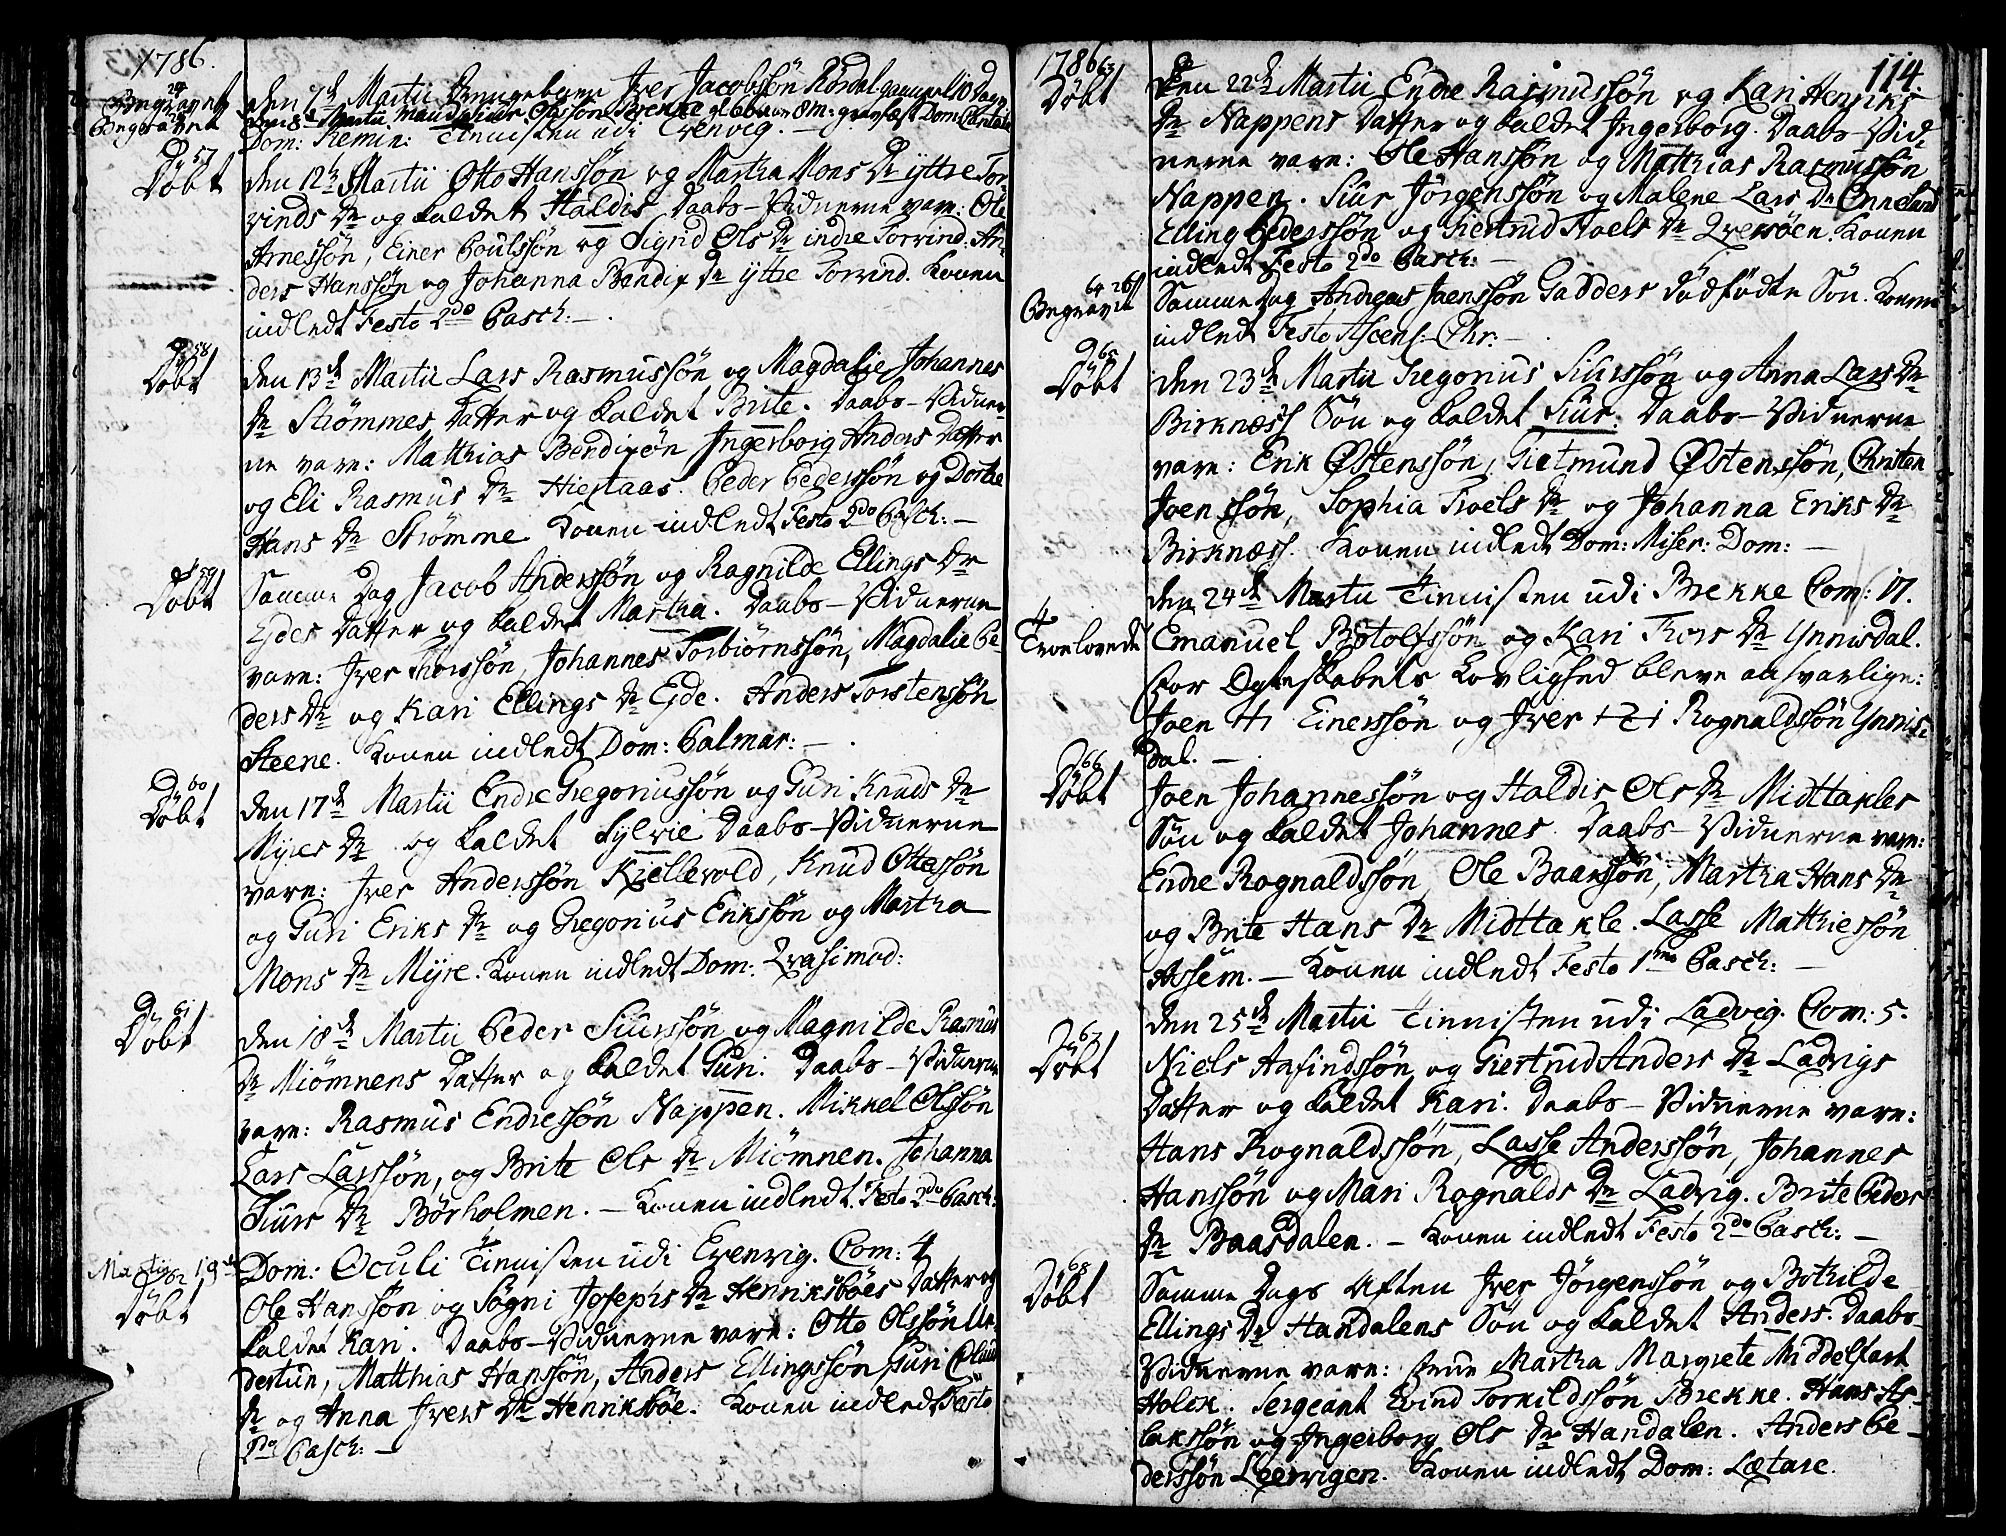 1786.
24
Begravet den 7de Martii Drengebarn Iver Jacobssøn Rørdal gammel 10 Dage.
25
Begravet den 8de Martii Olssøn Brekke Dom:
Dom: Remin: Tienisten udi Evenvig. —
57
Døbt den 12te Martii Otto Hanssøn og Martha Mons Dr ÿttre Tor-
vinds Dr og kaldet Haldis Daabs-Vidnerne vare: Ole
Arnessøn, Einer Poulssøn og Sigrid Ols Dr indre Torvind. An-
ders Hanssøn og Johanna Bendix Dr ÿttre Torvind. Konen
indledt Festo 2do Pasch: —
58
Døbt den 13de Martii Lars Rasmussøn og Magdalie Johannes
Dr Strømmes Datter og kaldet Brite. Daabs-Vidner-
ne vare: Matthias Bendixøn Ingerborg Anders Datter
og Eli Rasmus Dr Hiertaas. Peder Pederssøn og Dorthe
Hans Dr Strømme Konen indledt Festo 2do Pasch: —
59
Døbt Samme Dag Jacob Anderssøn og Ragnilde Ellings Dr
Eides Datter og kaldet Martha. Daabs-Vidnerne
vare: Iver Thorssøn, Johannes Torbiørnssøn, Magdalie Pe-
ders Dr og Kari Ellings Dr Eyde. Anders Torstenssøn
Steene. Konen indledt Dom: Palmar: —
60
Døbt den 17de Martii Endre Gregoriussøn og Guri Knuds Dr
Myres Dr og kaldet Sylvie Daabs-Vidnerne
vare: Iver Anderssøn Kiellevold, Knud Ottessøn
og Guri Eriks Dr og Gregorius Erikssøn og Martha
Mons Dr Myre. Konen indledt Dom: Qvasimod:
61
Døbt den 18de Martii Peder Siurssøn og Magnilde Rasmus
Dr Miømnens Datter og kaldet Guri. Daabs-Vidnerne
vare: Rasmus Endressøn Nappen. Mikkel Olssøn
Lars Larssøn, og Brite Ols Dr Miømnen. Johanna
Siurs Dr Børholmen. — Konen indledt Festo 2do Pasch:
Martii 19de Dom: Oculi Tienisten udi Evenvig. Com: 4
62
Døbt Ole Hanssøn og Søgni Josephs Dr Henriksbøes Datter og
kaldet Kari. Daabs-Vidnerne vare: Otto Olssøn Un-
dertun, Matthias Hanssøn, Anders Ellingssøn Guri
Dr og Anna Ivers Dr Henriksbøe. Konen indledt Festo
2do Pasch: —
1786
114.
63
Døbt den 22de Martii Endre Rasmussøn og Kari Henriks
Dr Nappens Datter og kaldet Ingerborg. Daabs-Vid-
nerne vare: Ole Hanssøn og Matthias Rasmussøn
Nappen. Siur Jörgenssøn og Malene Lars Dr Enneland
Elling Pederssøn og Giertrud Noels Dr Qversöen. Konen
indledt Festo 2do Pasch: —
64 26
Begravet Samme Dag Andreas Joenssøn Gadders dødfødte Søn. Konen
indledt Festo Ascens: Chr: —
65
Døbt den 23de Martii Gregorius Siurssøn og Anna Lars Dr
Birknæss Søn og kaldet Siur. Daabs-Vidnerne
vare: Erik Østenssøn, Gietmund Østenssøn, Christen
Joenssøn, Sophia Troels Dr og Johanna Eriks Dr
Birknæss. Konen indledt Dom: Miser: Dom: —
den 24de Martii Tienisten udi Brekke Com: 17.
4
Troelovede Emanuel Bótolfssøn og Kari Thors Dr Ynnisdal.
For Ægteskabets Lovlighed bleve ansvarlige:
Joen Einerssøn og Iver Rognaldssøn Ynnis-
dal. —
66
Døbt Joen Johannessøn og Haldis Ols Dr Midttakles
Søn og kaldet Johannes. Daabs-Vidnerne vare:
Endre Rognaldssøn, Ole Baarssøn, Martha Hans Dr
og Brite Hans Dr Midttakle. Lasse Matthiessøn
Assem. — Konen indledt Festo 1mo Pasch: —
den 25de Martii Tienisten udi Ladvig. Com: 5.
67
Døbt Niels Arfindssøn og Giertrud Anders Dr Ladvigs
Datter og kaldet Kari. Daabs-Vidnerne vare:
Hans Rognaldssøn, Lasse Anderssøn, Johannes
Hanssøn og Mari Rognalds Dr Ladvig. Brite Peders
Dr Baasdalen. — Konen indledt Festo 2do Pasch: —
68
Døbt Samme Dags Aften Iver Jørgenssøn og Bothilde
Ellings Dr Handalens Søn og kaldet Anders. Daabs-
Vidnerne vare: Frue Martha Margrete Middelfart
Holck. Sergeant Evind Torkildssøn Brekke. Hans As-
lakssøn og Ingerborg Ols Dr Handalen. Anders Pe-
derssøn Leervigen. Konen indledt Dom: Lætare.